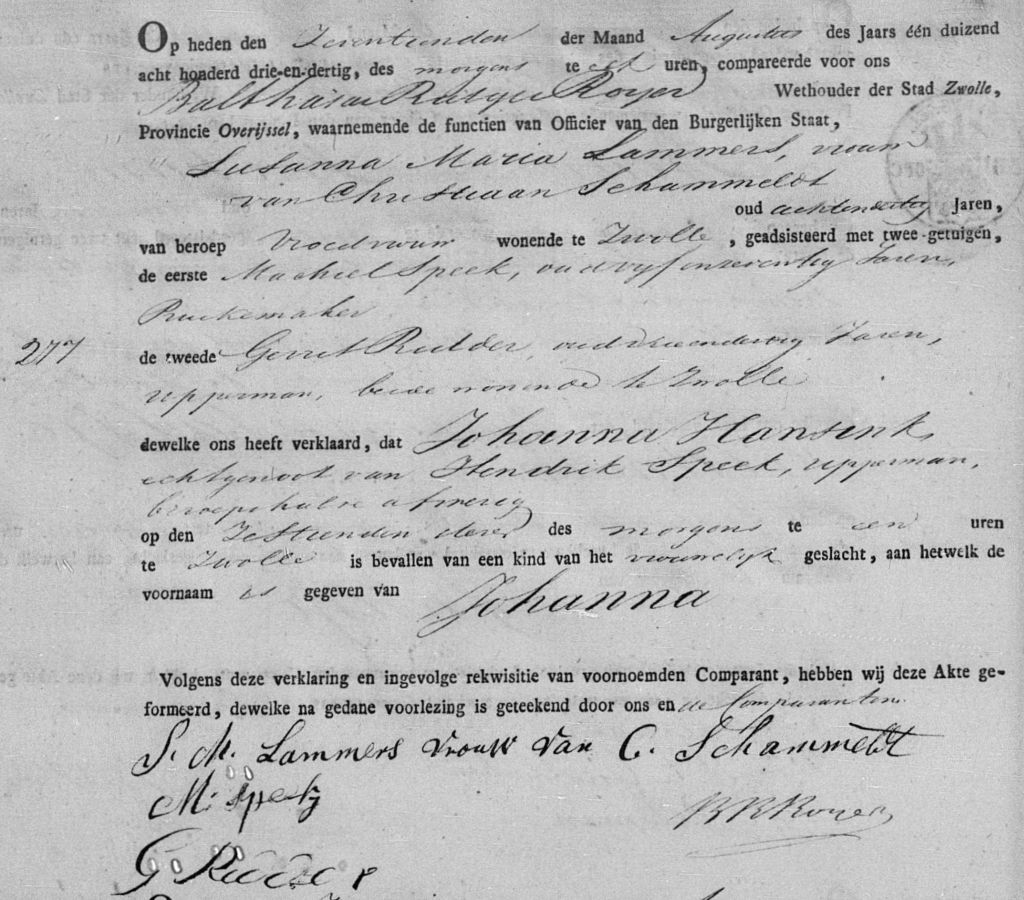 Op heden den Zeventienden der Maand Augustus des Jaars één duizend
acht honderd drie-en-dertig, des morgens te elf uren, compareerde voor ons
Balthasar Rutger Royer Wethouder der Stad Zwolle,
Provincie Overijssel, waarnemende de functien van Officier van den Burgerlijken Staat,
Susanna Maria Lammers, vrouw
van Christiaan Schammeldt
oud achtendertig Jaren,
van beroep Vroedvrouw wonende te Zwolle, geadsisteerd met twee getuigen,
de eerste Machiel Speek, oud vijfenzeventig Jaren,
277
de tweede Gerrit Ridder, oud drieendertig Jaren,
upperman, beide wonende te Zwolle
dewelke ons heeft verklaard, dat Johanna Hansink,
echtgenoot van Hendrik Speek, upperman,
beroepshalve afwezig
op den Zestienden dezer des morgens te een uren
te Zwolle is bevallen van een kind van het vrouwelijk geslacht, aan hetwelk de
voornaam is gegeven van Johanna
Volgens deze verklaring en ingevolge rekwisitie van voornoemden Comparant, hebben wij deze Akte ge-
formeerd, dewelke na gedane voorlezing is geteekend door ons en de Comparanten.
S. M. Lammers vrouw van C. Schammeldt
M: Speek
B R Royer
G Ridder